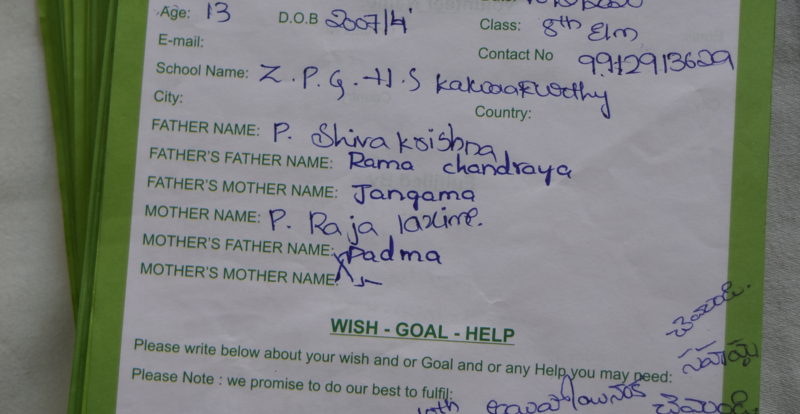 Age: 13 D.O.B 2007/4 Class: 8th Elm
E-mail: Contact No 9912913629
School Name: Z.P.G.H.S
City: Country:
FATHER NAME: P. Shiva krishna
FATHER'S FATHER NAME: Rama chandraya
FATHER'S MOTHER NAME: Jangama
MOTHER NAME: P. Raja laxime.
MOTHER'S FATHER NAME: Padma
MOTHER'S MOTHER NAME:
WISH - GOAL - HELP
Please write below about your wish and or Goal and or any Help you may need:
Please Note : we promise to do our best to fulfil: